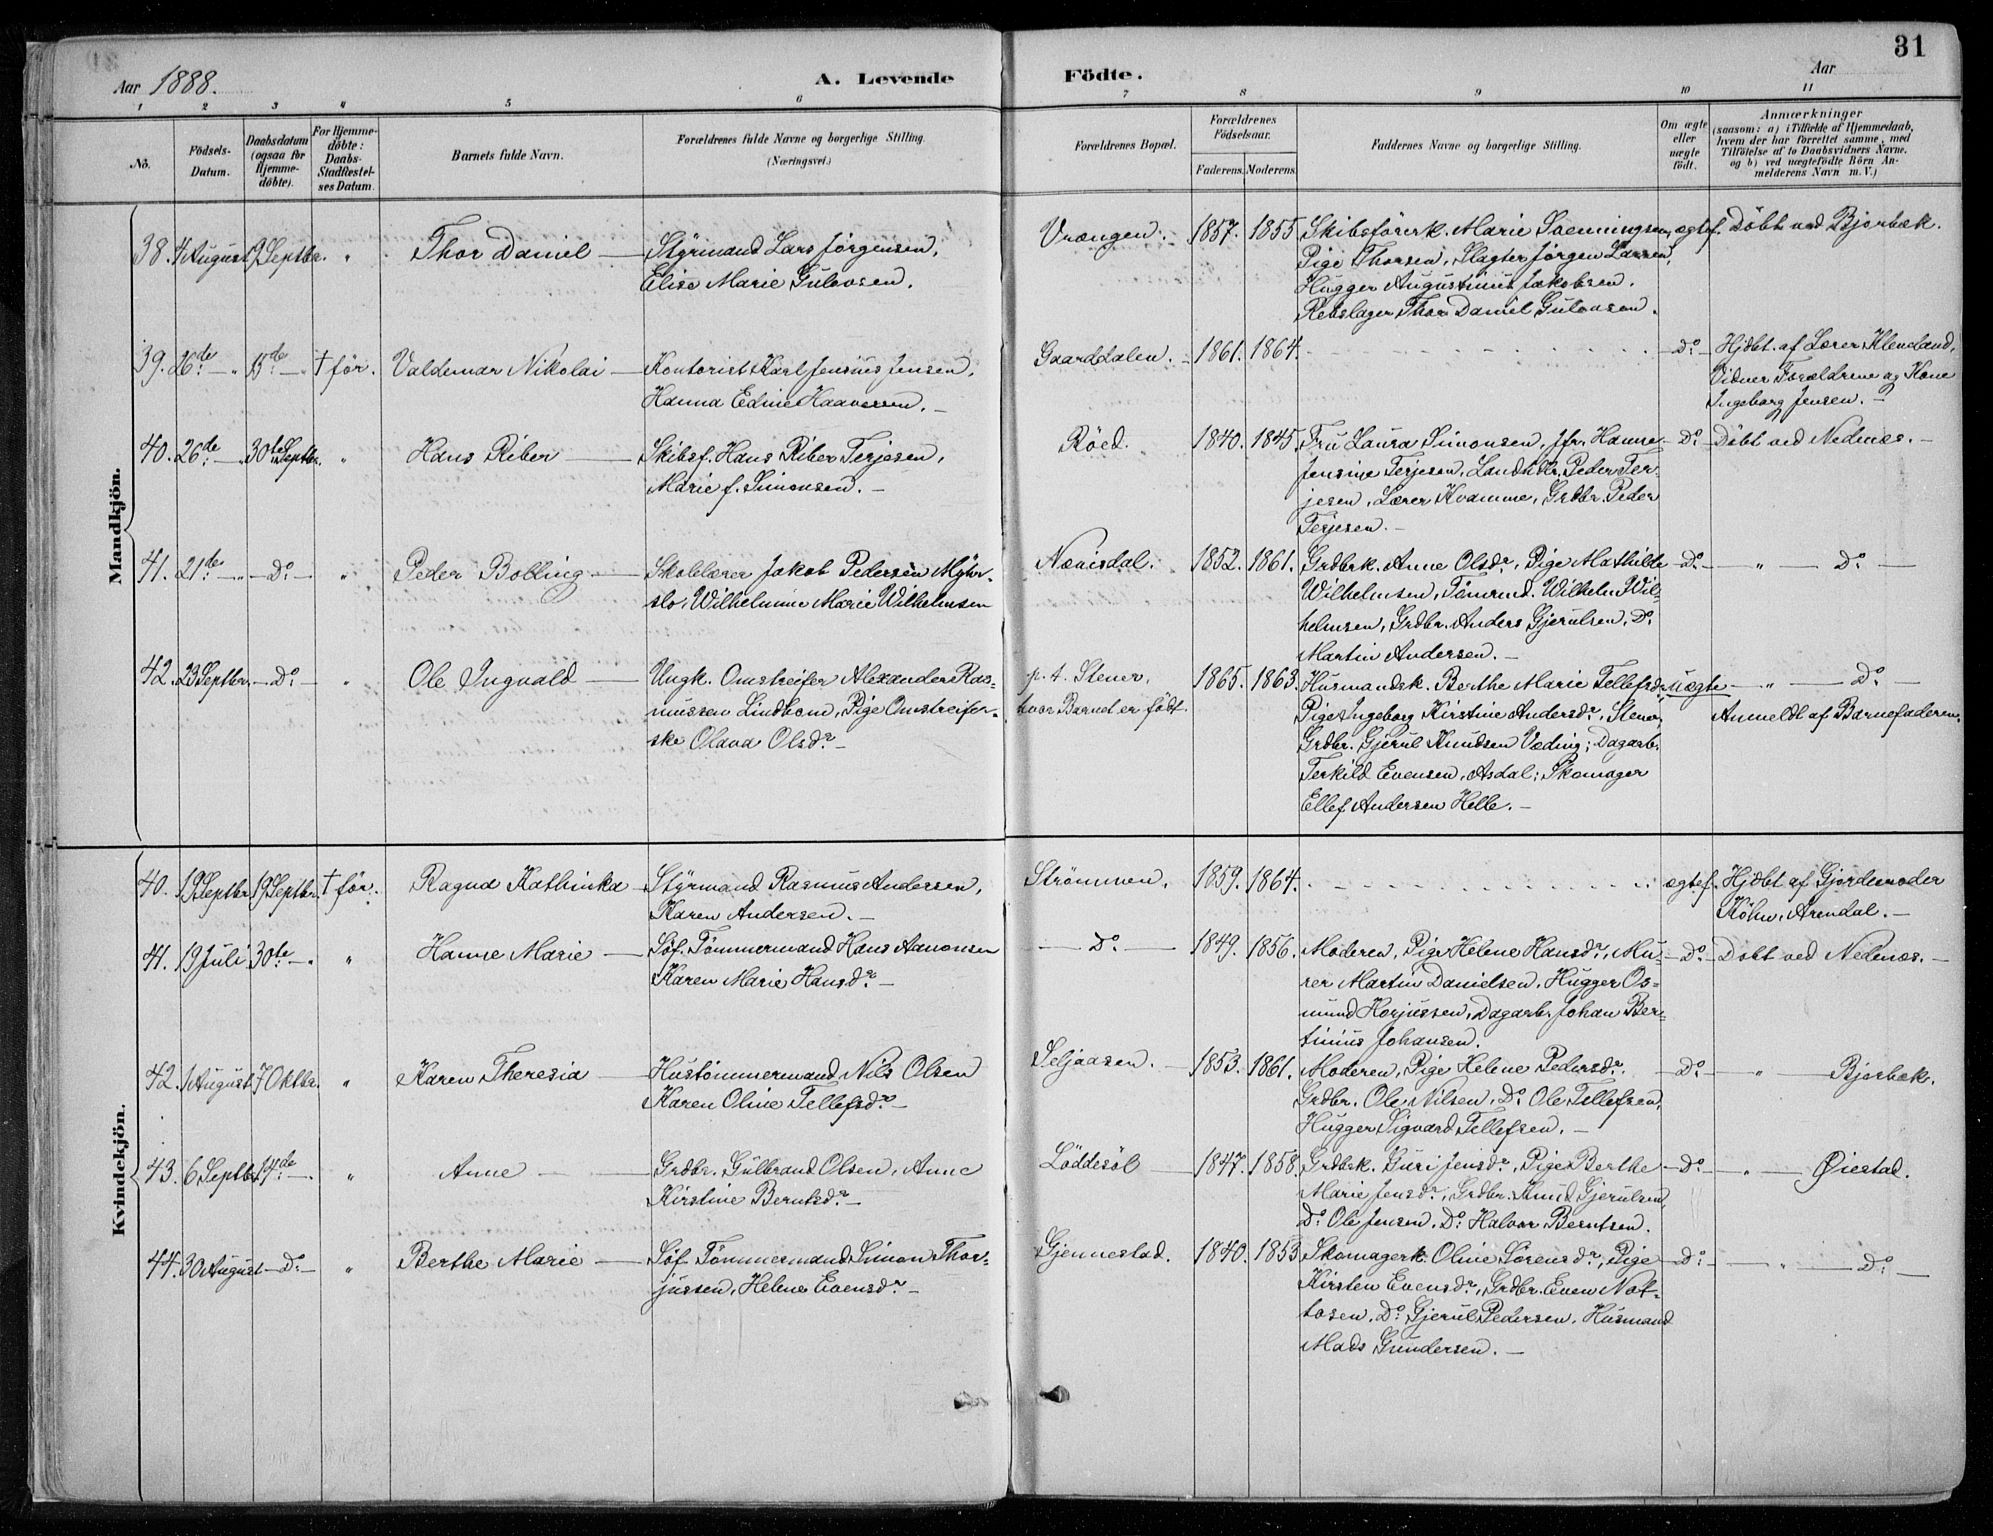 31
Aar 1888. A. Levende Födte. Aar
1 2 3 4 5 6 7 8 9 10 11
No.
Födsels-Datum.
Daabsdatum (ogsaa för Hjemmedöbte).
For Hjemmedöbte: Daabs-Stadfæstelses Datum.
Barnets fulde Navn.
Forældrenes fulde Navne og borgerlige Stilling. (Næringsvei.)
Forældrenes Bopæl.
Forældrenes Födselsaar.
Faderens. Moderens.
Faddernes Navne og borgerlige Stilling.
Om ægte eller uægte födt.
Anmærkninger
(saasom: a) i Tilfælde af Hjemmedaab,
hvem der har forrettet samme, med
Tilföielse af to Daabsvidners Navne.
og b) ved uægtefödte Börn An-
melderens Navn m. V.)
Mandkjön.
38. 4 August 9 Septbr. " Thor Daniel — Styrmand Lars Jørgensen,
Elise Marie Gulovsen.
Vrængen. 1857. 1855 Skibsförerk. Marie Soenningsen,
Pige Thorsen, Slagter Jørgen Larsen,
Hugger Augustinus Jakobsen.
Rebslager Thor Daniel Gulovsen.
ægtef. Döbt ved Bjorbæk.
39. 26de — " 15de — " † för. Valdemar Nikolai — Kontorist Karl Jensius Jensen,
Hanna Edine Haavorsen. —
Gaarddalen. 1861. 1864. — Do — Hjdbt. af Lærer Klemland,
Vidner Forældrene og Kone
Ingeborg Jensen. —
40. 26de — " 30te Septbr. " Hans Riber — Skibsf. Hans Riber Terjesen,
Marie f. Simonsen. —
Röed. 1840. 1845. Fru Laura Simonsen, Jfr. Hanne
Jensine Terjesen, Landhdlr. Peder Ter-
jesen, Lærer Kvamme, Grdbr. Peder
Terjesen. —
Do — Döbt ved Nedenæs. —
41. 21de — " — Do — " Peder Bolling — Skolelærer Jakob Pedersen Myhr-
slo, Wilhelmine Marie Wilhelmsen
Nævisdal. 1852. 1861. Grdbrk. Anne Olsdr, Pige Mathilde
Wilhelmsen, Tömmd. Wilhelm Wil-
helmsen, Grdbr. Anders Gjerulsen, Do
Martin Andersen. —
Do — " — Do —
42. 23 Septbr. — Do — " Ole Ingvald — Ungk. Omstreifer Alexander Ras-
mussen Lindbom, Pige Omstreifer-
ske Olava Olsdr —
p. t. Stener,
hvor Barnet er födt.
1865. 1863. Husmandsk. Berthe Marie Tellefsdr
Pige Ingeborg Kirstine Andersdr, Stener,
Grdbr. Gjerul Knudsen Væding; Dagarb.
Terkild Evensen, Asdal; Skomager
Ellef Andersen Helle. —
uægte — " — Do —
Anmeldt af Barnefaderen.
Kvindekjön.
40. 19 Septbr. 19 Septbr. † för. Ragna Kathinka — Styrmand Rasmus Andersen,
Karen Andersen. —
Strömmen. 1859. 1864. ægtef. Hjdbt af Gjordemoder
Köhn, Arendal. —
41. 19 Juli 30te — " " Hanne Marie — Söf. Tömmermand Hans Aanonsen
Karen Marie Hansdr —
— Do — 1849. 1856. Moderen, Pige Helene Hansdr, Mu-
rer Martin Danielsen, Hugger Os-
mund Horjussen, Dagarb. Johan Ber-
tinius Johansen.
Do — Döbt ved Nedenæs. —
42. 1 August 7 Oktbr. " Karen Theresia — Hustömmermand Nils Olsen
Karen Oline Tellefsdr —
Seljaasen. 1853. 1861. Moderen, Pige Helene Pedersdr.
Grdbr. Ole Nilsen, Do Ole Tellefsen,
Hugger Sigvard Tellefsen. —
Do — " Bjorbæk.
43. 6 Septbr. 14de — " Anne — Grdbr. Gulbrand Olsen, Anne
Kirstine Berntsdr —
Löddesöl — 1847. 1858. Grdbrk. Guri Jensdr, Pige Berthe
Marie Jensdr, Grdbr. Knud Gjerulsen,
Do Ole Jensen, Do Halvor Berntsen.
Do — " — Øiestad.
44. 30 August — Do — " Berthe Marie — Söf. Tömmermand Simon Thor-
jussen, Helene Evensdr —
Gjennestad. 1840. 1853 Skomagerk. Oline Sörensdr, Pige
Kirsten Evensdr, Grdbr. Even Not-
tosen, Do Gjerul Pedersen, Husmand
Mads Gundersen. —
Do — " — Do —